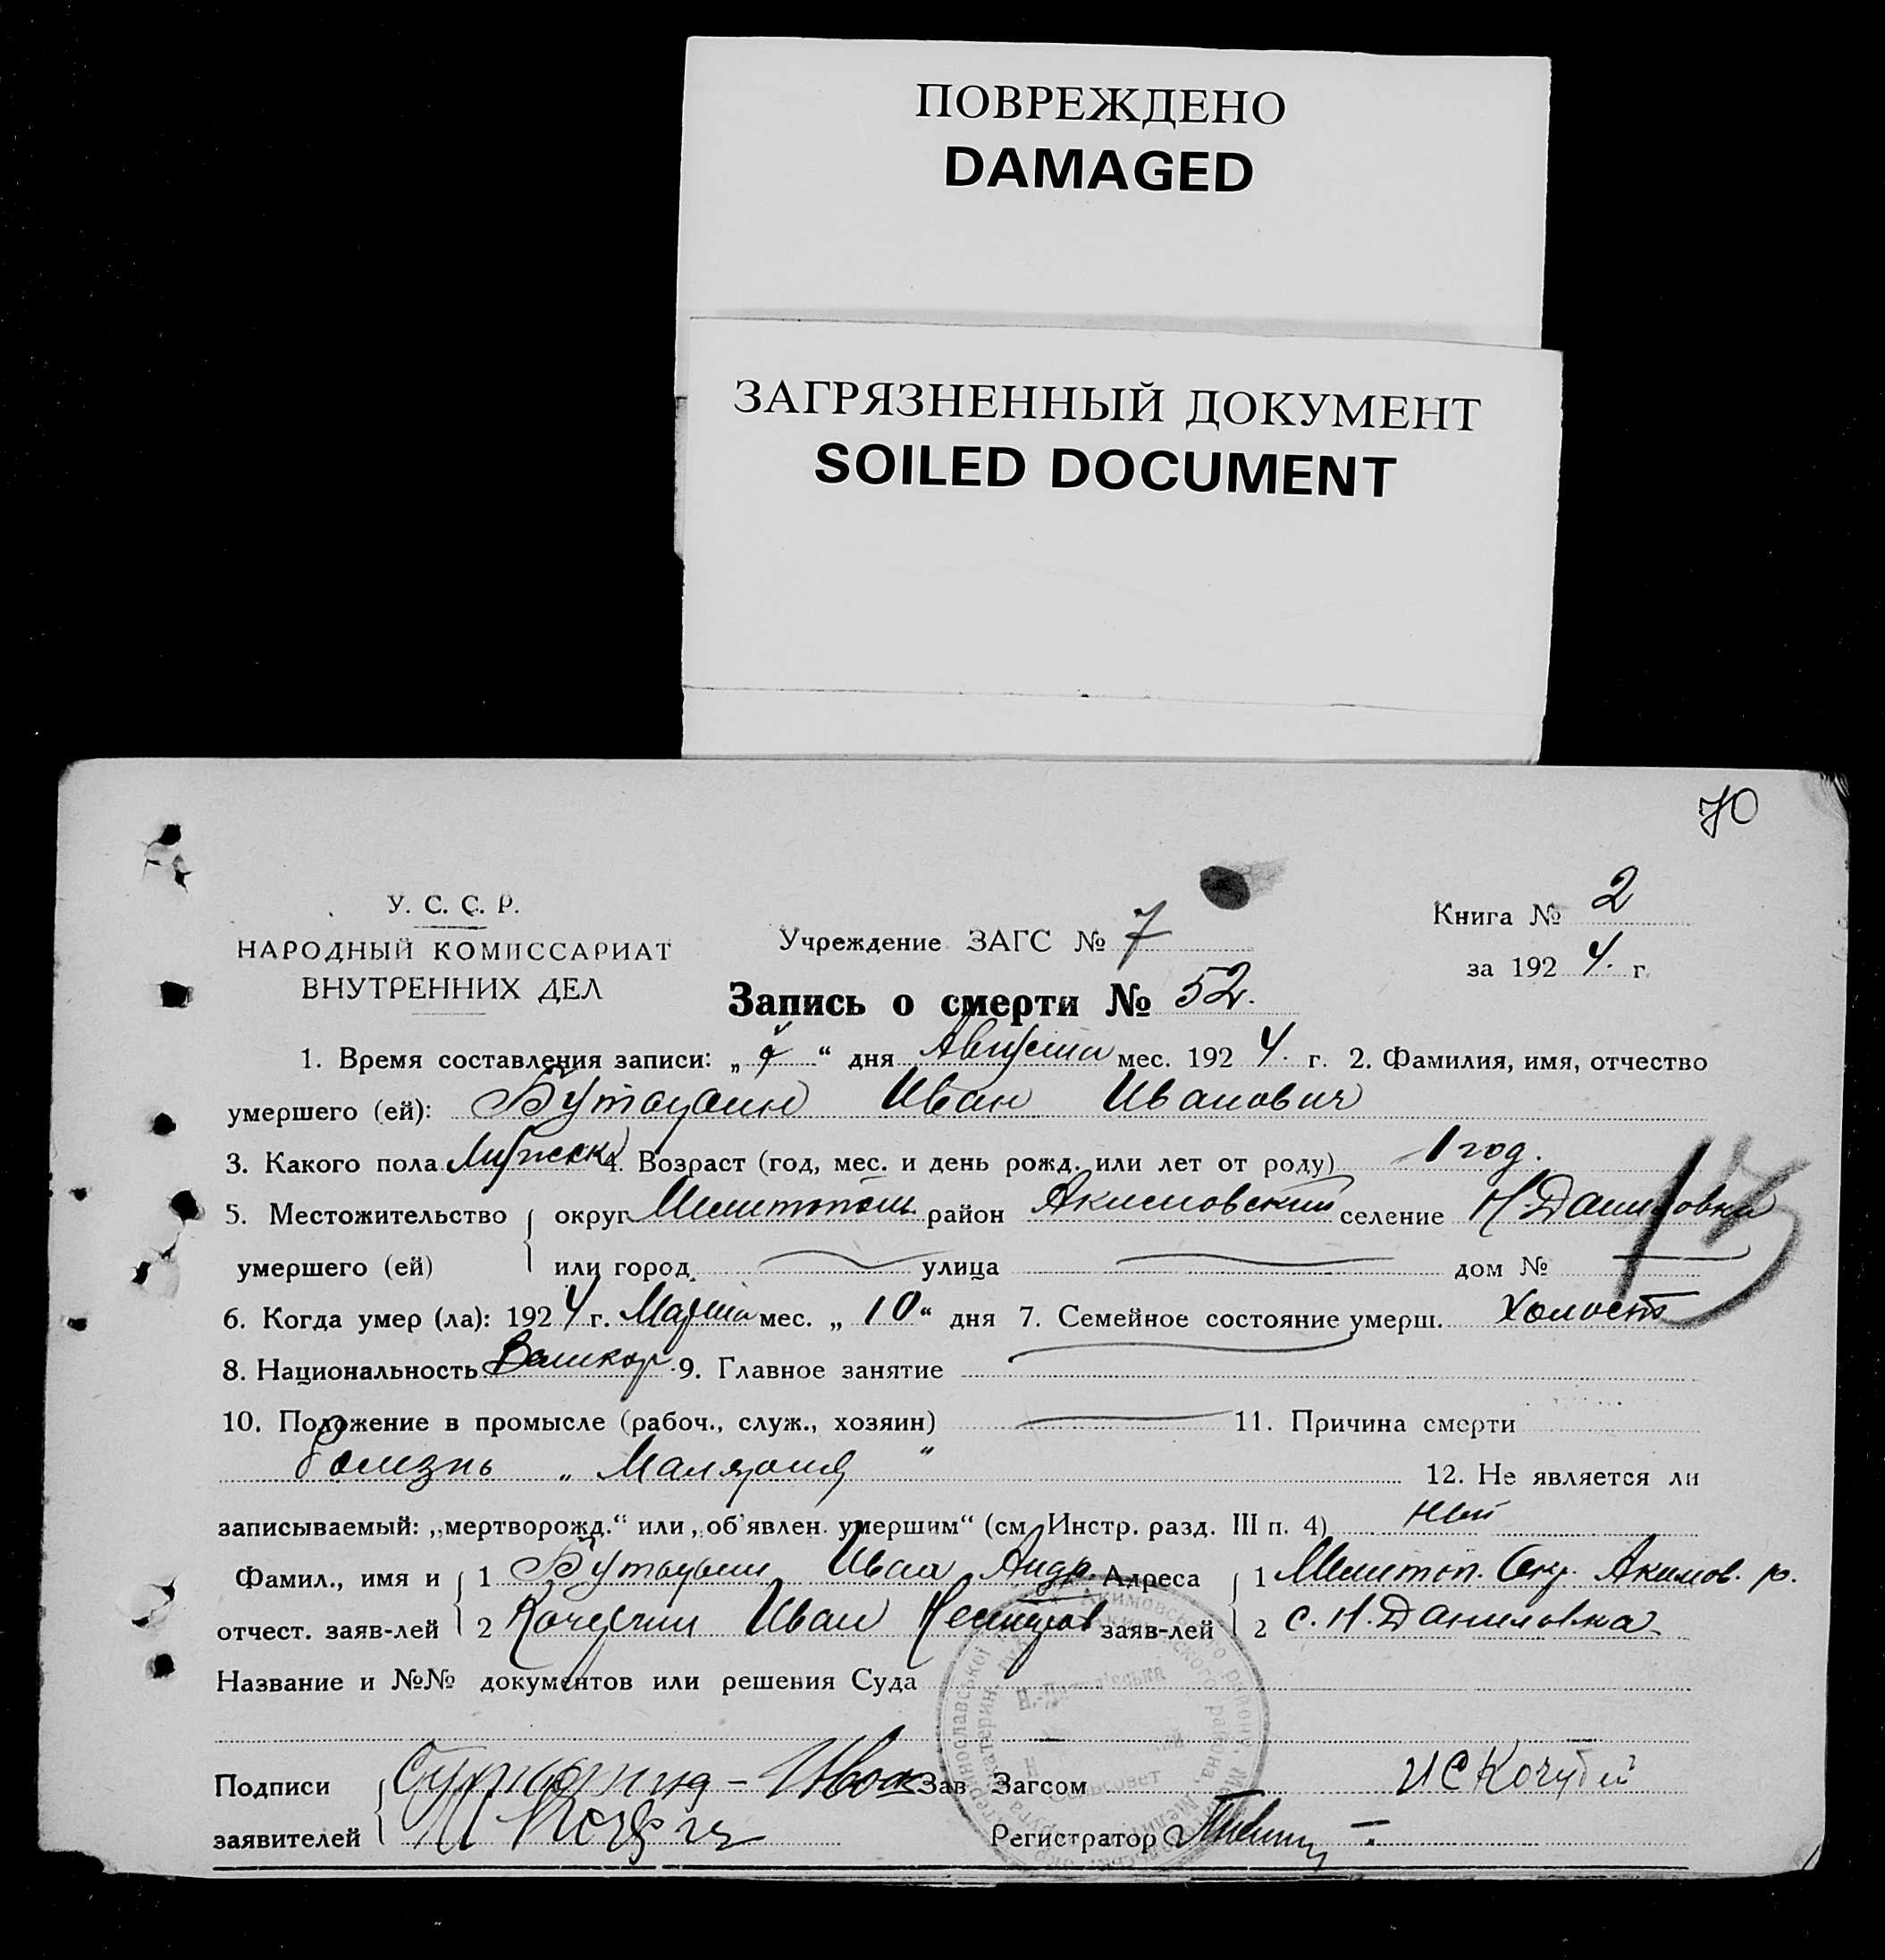 ПОВРЕЖДЕНО
DAMAGED
ЗАГРЯЗНЕННЫЙ ДОКУМЕНТ
SOILED DOCUMENT
70
У. С. С. Р.
НАРОДНЫЙ КОМИССАРИАТ
ВНУТРЕННИХ ДЕЛ
Учреждение ЗАГС № 7
Книга № 2
за 192 4. г.
Запись о смерти № 52.
1. Время составления записи: „ “ дня Августа мес. 192 4. г. 2. Фамилия, имя, отчество
умершего (ей): Иван Иванович
3. Какого пола Мужск. 4. Возраст (год, мес. и день рожд. или лет от роду) 1 год.
5. Местожительство округ Мелитополь район Акимовский селение Н Даниловка
умершего (ей) или город улица дом №
13
6. Когда умер (ла): 192 4 г. Марта мес. „ 10 “ дня 7. Семейное состояние умерш. Холост
8. Национальность Великор. 9. Главное занятие
10. Положение в промысле (рабоч., служ., хозяин) 11. Причина смерти
болезнь „ Малярия “ 12. Не является ли
записываемый: „мертворожд.“ или „об'явлен. умершим“ (см. Инстр. разд. III п. 4) нет
Фамил., имя и 1 Иван Андр. Адреса 1 Мелитоп. Окр. Акимов. р.
отчест. заяв-лей 2 Иван заяв-лей 2 с. Н. Даниловка
Название и №№ документов или решения Суда
Подписи Иван Зав. Загсом И С Кочубей
заявителей Регистратор